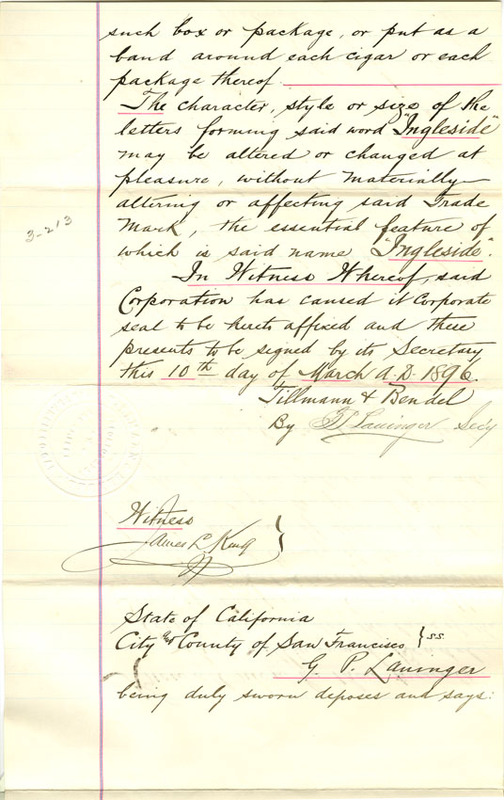 such box or package, or put as a
band around each cigar or each
package thereof.
The character, style or size of the
letters forming said word "Ingleside"
may be altered or changed at
pleasure, without materially
altering or affecting said Trade
Mark, the essential feature of
which is said name "Ingleside".
3-213
In Witness Whereof, said
Corporation has caused it Corporate
seal to be hereto affixed and these
presents to be signed by its Secretary
this 10th day of March A.D. 1896.
Tillmann & Bendel
By G P Lauinger Secy
Witness
James L. King }
State of California
City & County of San Francisco } ss.
G. P. Lauinger
being duly sworn deposes and says: